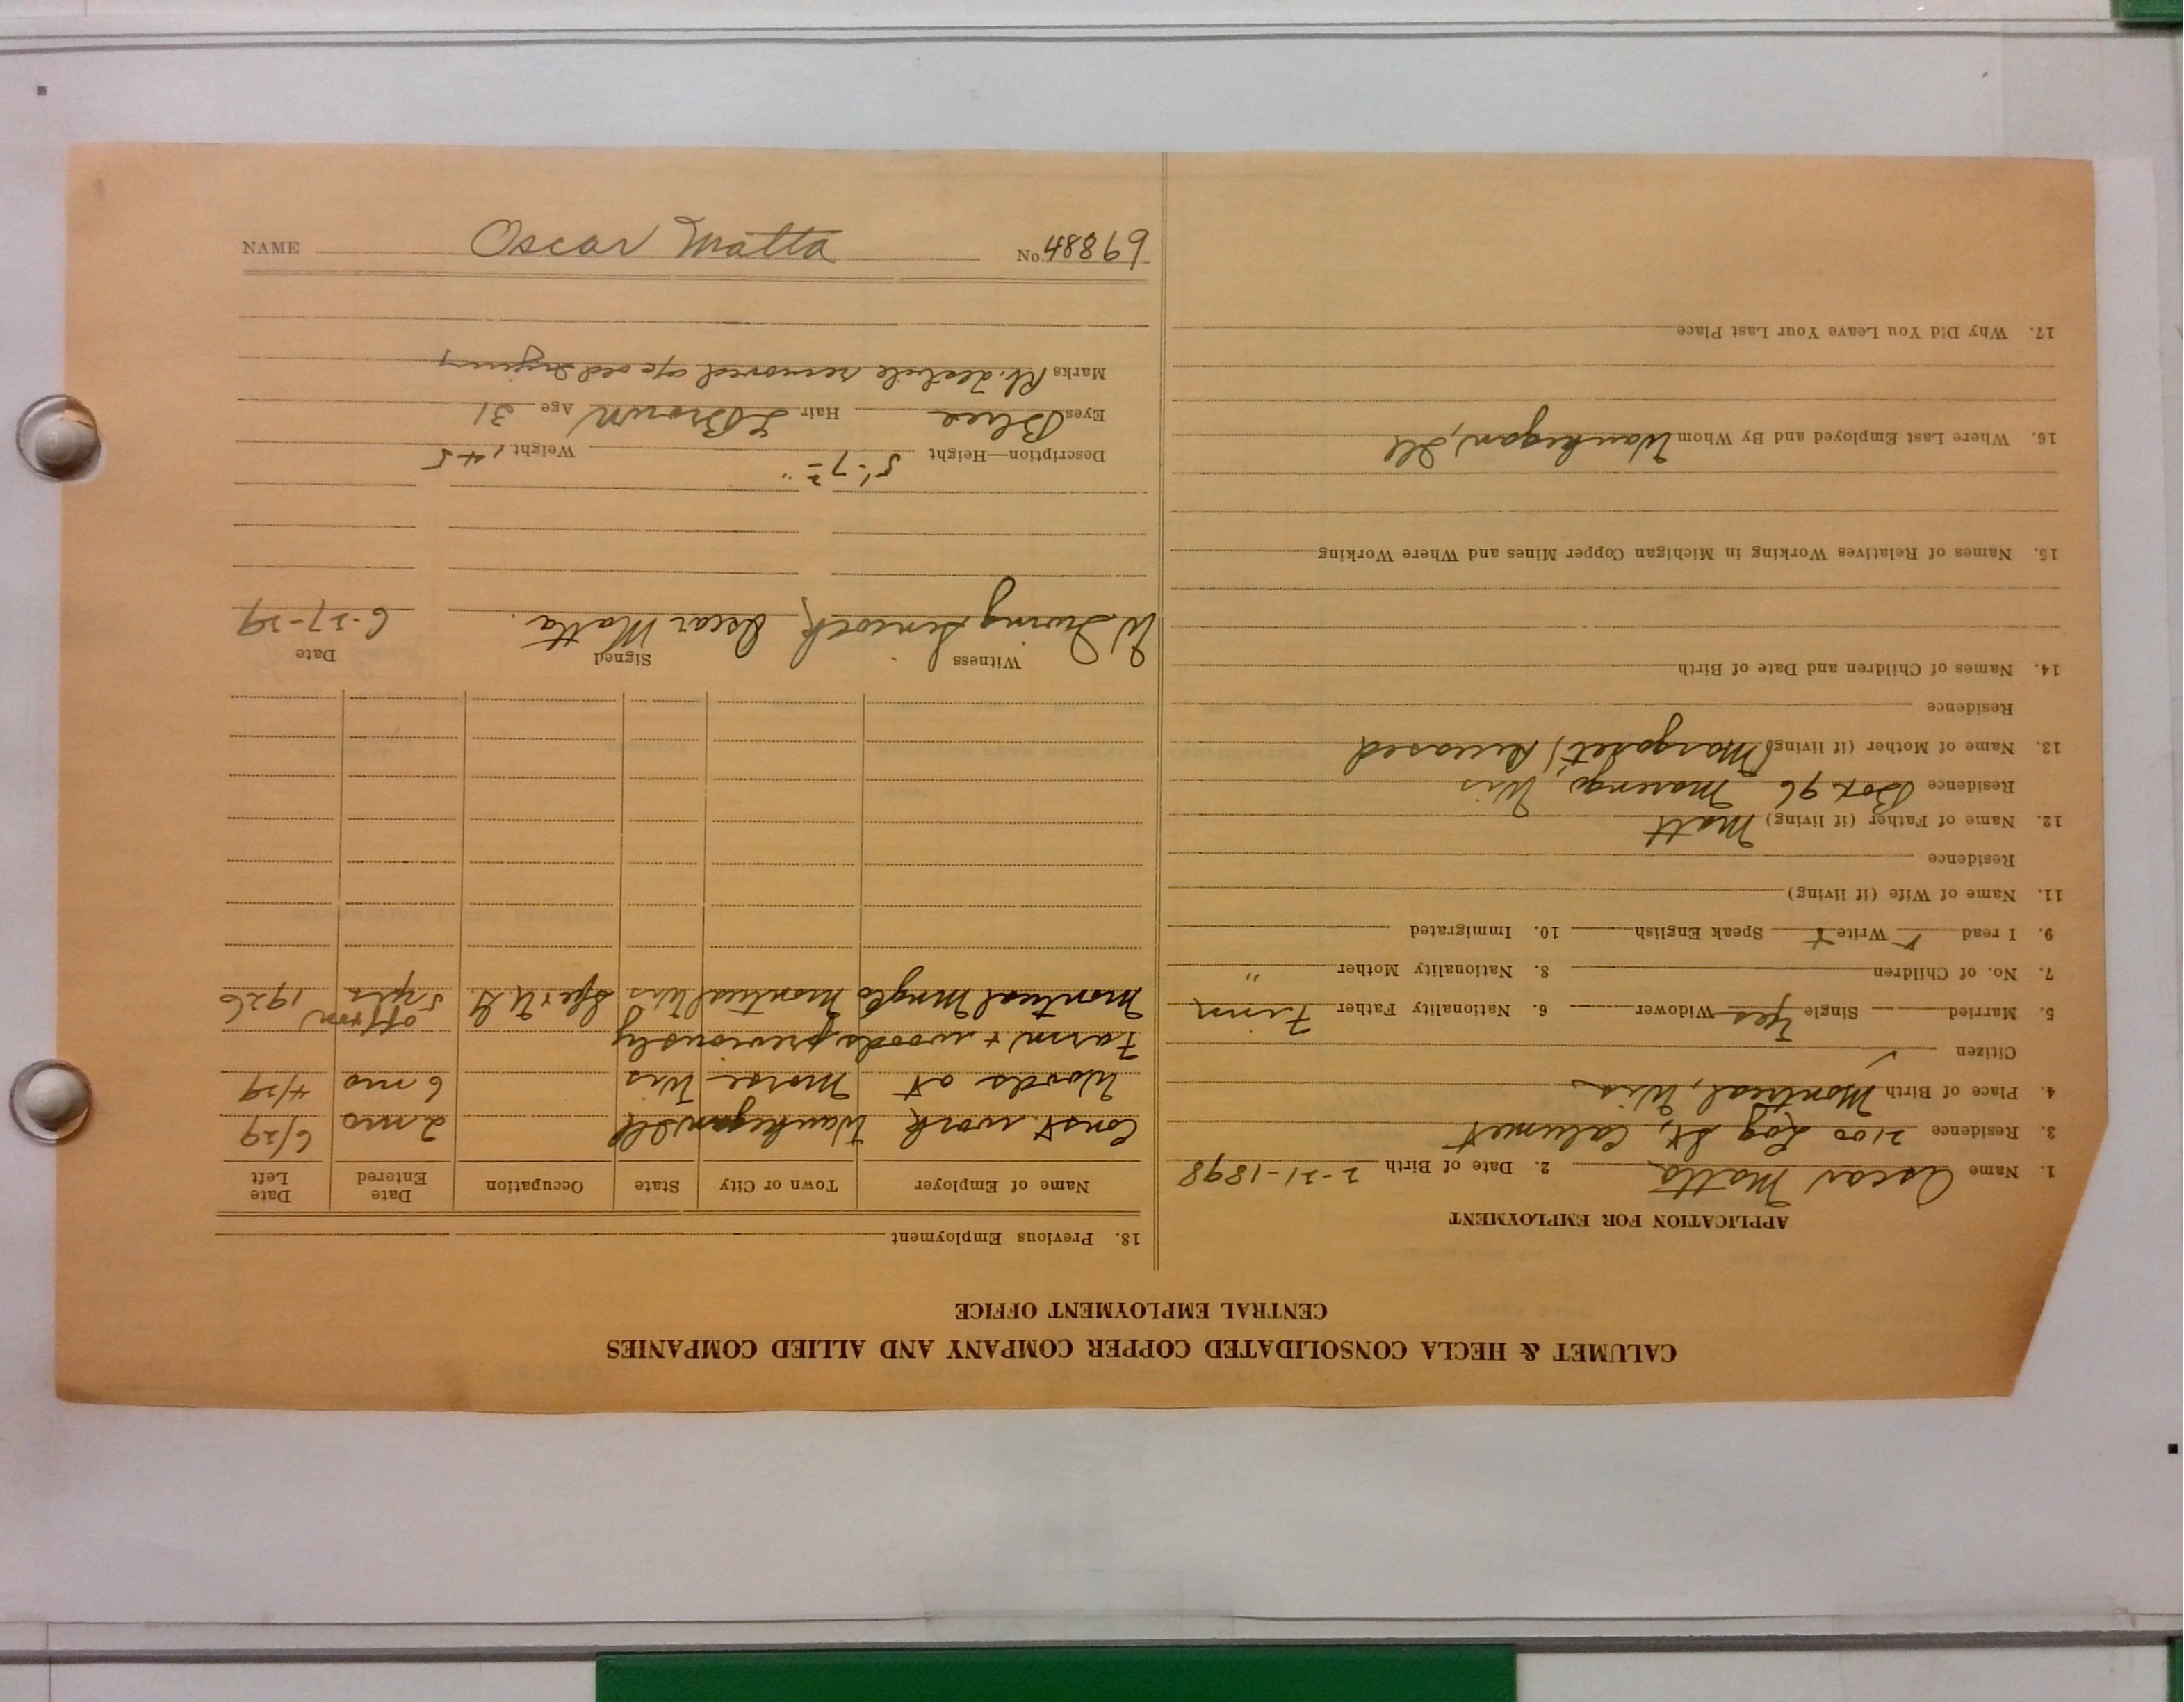 CALUMET & HECLA CONSOLIDATED COPPER COMPANY AND ALLIED COMPANIES
CENTRAL EMPLOYMENT OFFICE
APPLICATION FOR EMPLOYMENT
1. Name Oscar Matta 2. Date of Birth 2-21-1898
3. Residence 2100 Log St, Calumet
4. Place of Birth Montreal, Wis
Citizen ✓
5. Married Single Yes Widower 6. Nationality Father Finn
7. No. of Children 8. Nationality Mother "
9. I read Write Speak English 10. Immigrated
11. Name of Wife (if living)
Residence
12. Name of Father (if living) Matt
Residence Box 96 Marengo, Wis
13. Name of Mother (if living) (Margaret) Deceased
Residence
14. Names of Children and Date of Birth
15. Names of Relatives Working in Michigan Copper Mines and Where Working
16. Where Last Employed and By Whom Waukegan, Ill
17. Why Did You Leave Your Last Place
18. Previous Employment
Name of Employer Town or City State Occupation Date Entered Date Left
Const. work Waukegan Ill 2 mo 6/29
Woods at Morse Wis 6 mo 4/29
Farm + woods previously
Montreal Mng Co Montreal Wis U.G. off + on 5 yrs 1926
Witness Signed Date
W. Irving Oscar Matta. 6-27-29
Description—Height 5'-7 Weight 145
Eyes Blue Hair L Brown Age 31
Marks Rt. testicle removed old injury
NAME Oscar Matta No. 48869